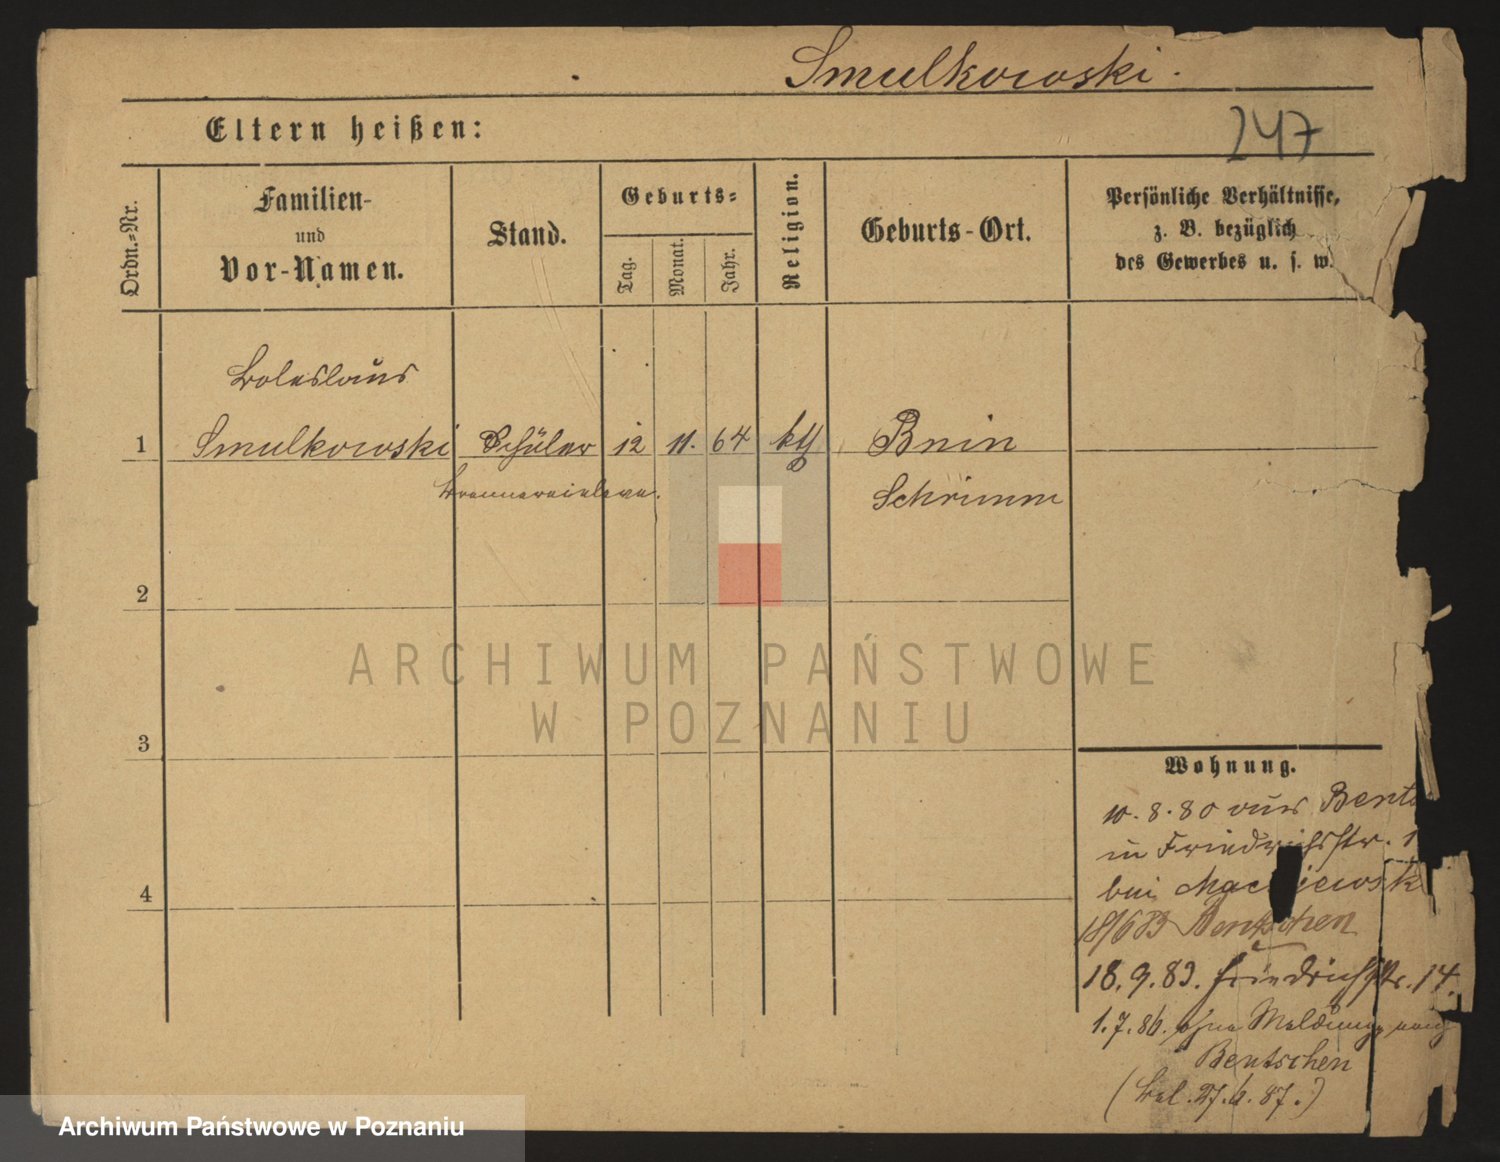 Smulkowski.
Eltern heißen:
247
Ordn.-Nr.
Familien-
und
Vor-Namen.
Stand.
Geburts-
Tag.
Monat.
Jahr.
Religion.
Geburts-Ort.
Persönliche Verhältnisse,
z. B. bezüglich
des Gewerbes u. s. w.
Boleslaus
1 Smulkowski Schüler 12 11. 64 kth Bnin
Brennereieleve. Schrimm
2
ARCHIWUM PAŃSTWOWE
W POZNANIU
3
Wohnung.
10.8.80 aus Bents
in Friedrichsstr. 1
bei Mac iewsk
4
18/6 83 Bentschen
18.9.83. Friedrichstr. 14.
1.7.86. ohne Meldung nach
Bentschen
(Bel. 27.6.87.)
Archiwum Państwowe w Poznaniu